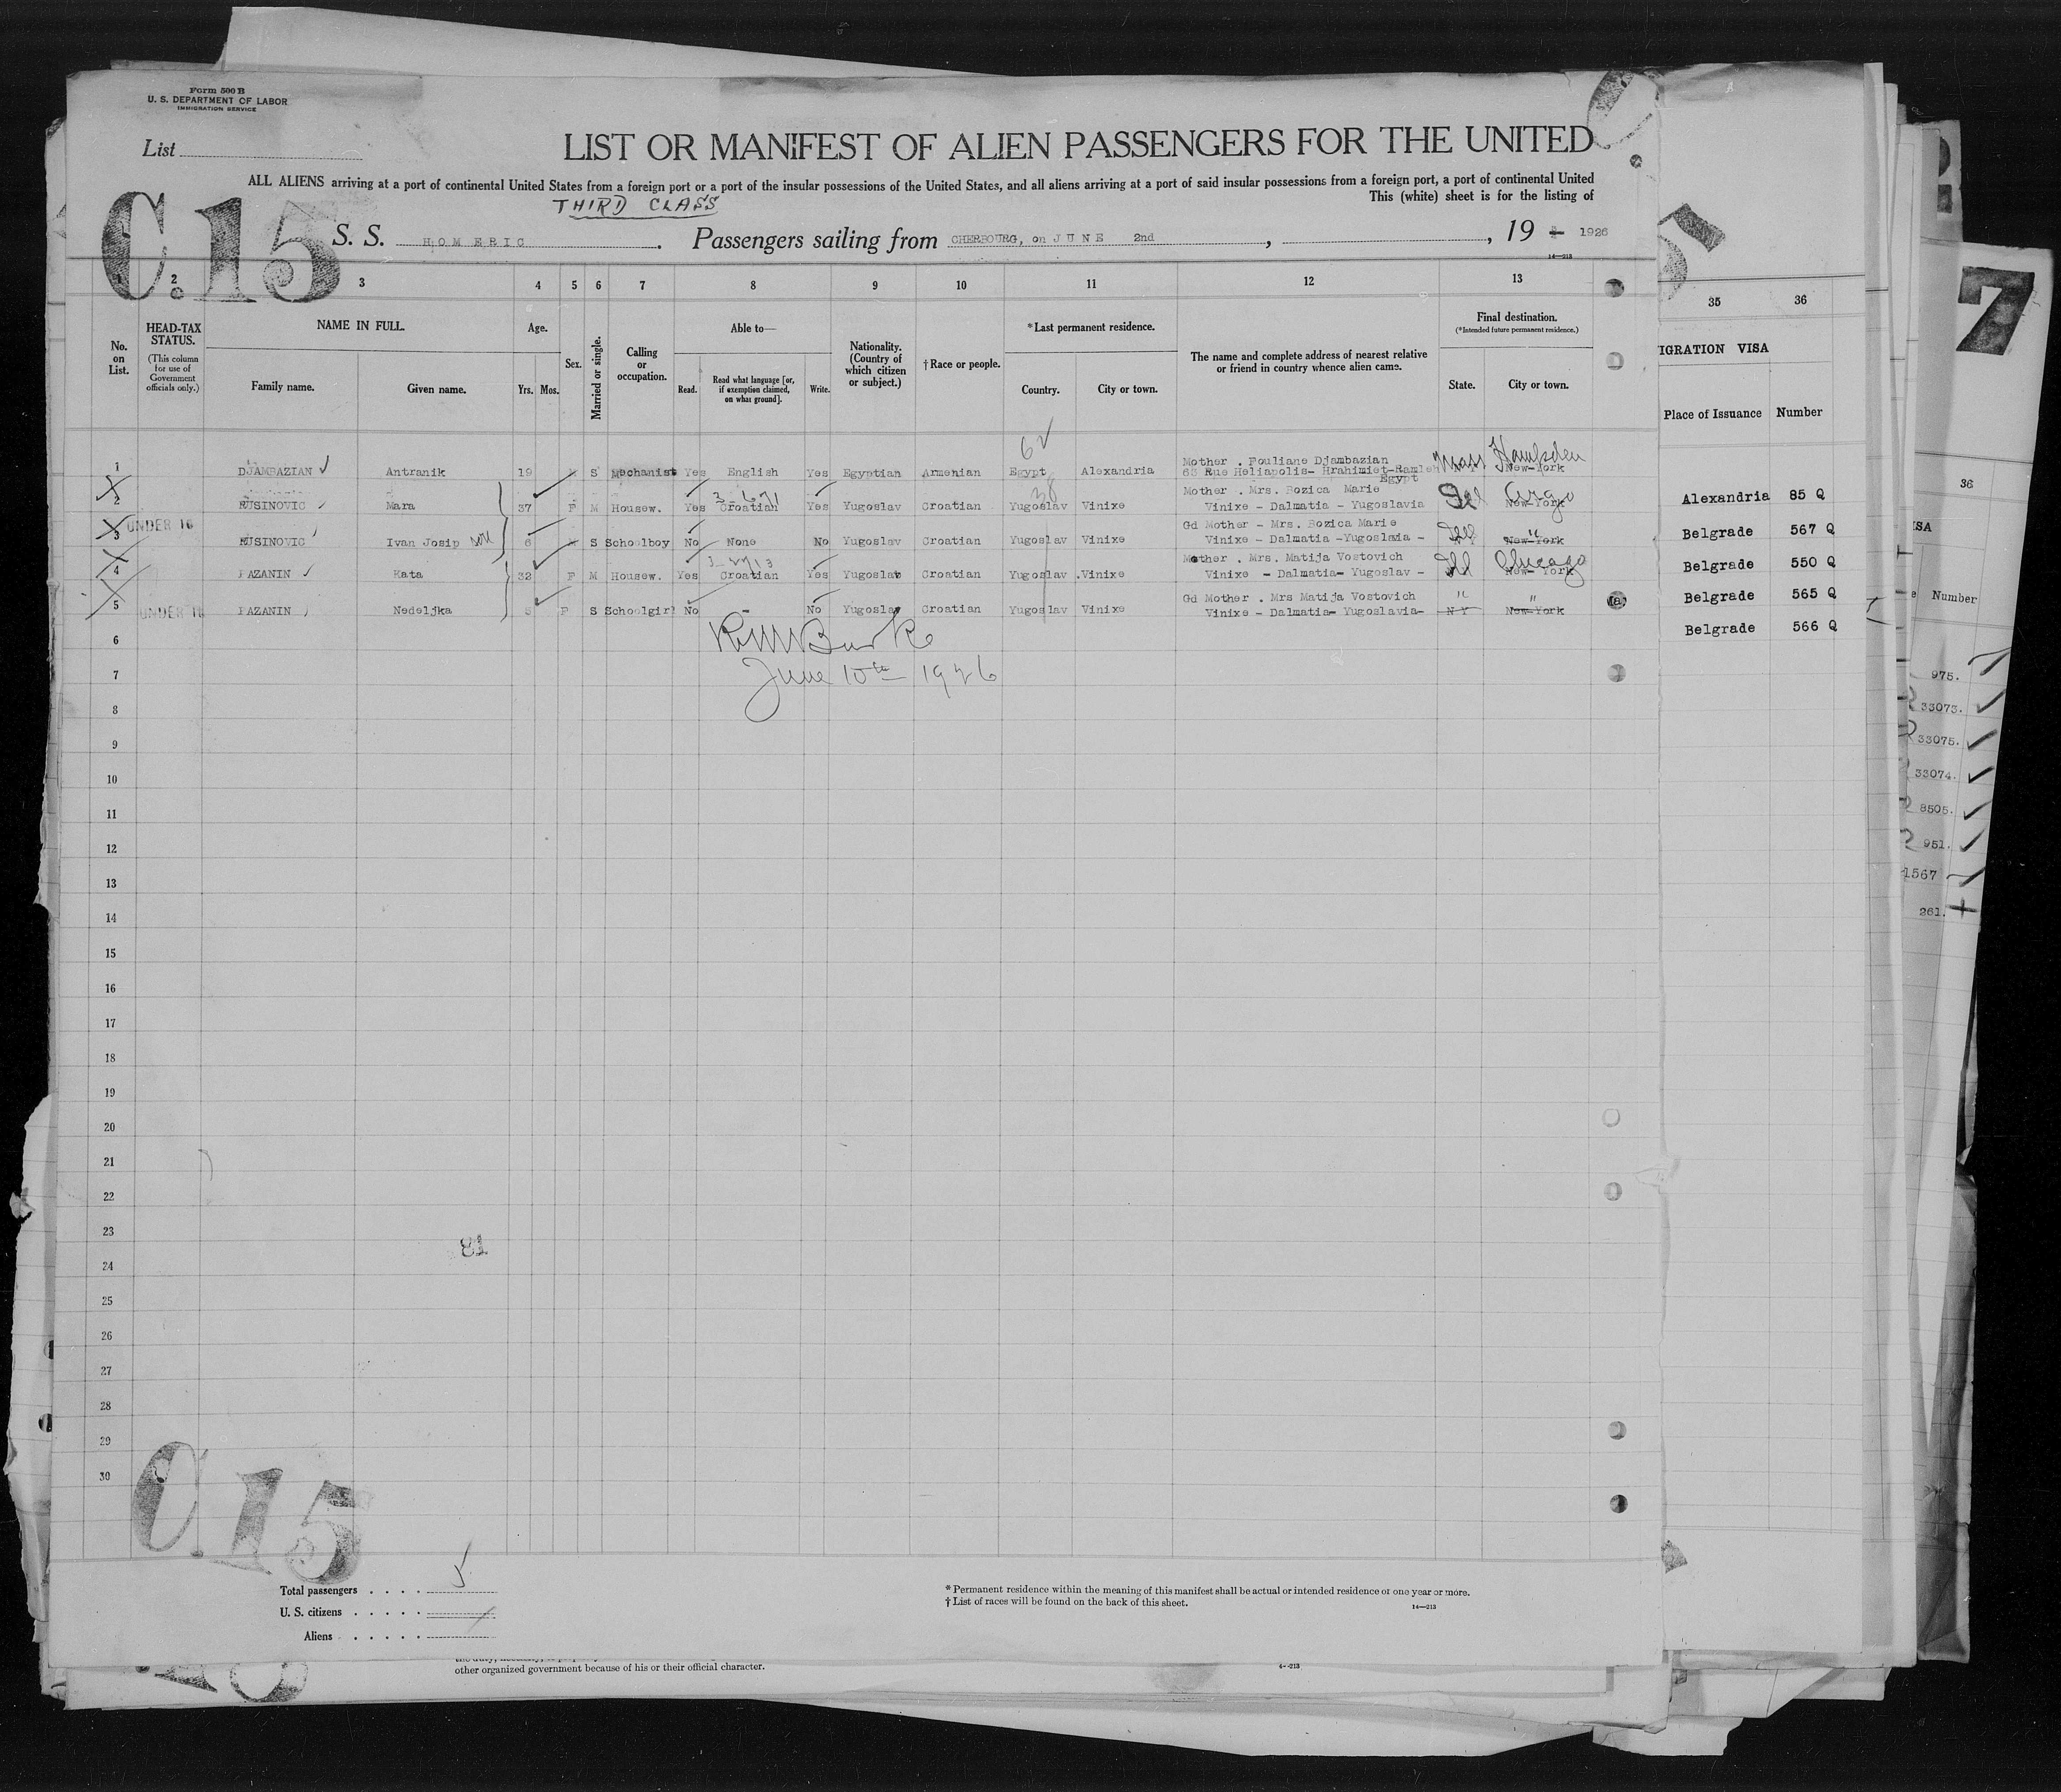 Form 500 B
U. S. DEPARTMENT OF LABOR
IMMIGRATION SERVICE
List
LIST OR MANIFEST OF ALIEN PASSENGERS FOR THE UNITED
ALL ALIENS arriving at a port of continental United States from a foreign port or a port of the insular possessions of the United States, and all aliens arriving at a port of said insular possessions from a foreign port, a port of continental United
This (white) sheet is for the listing of
THIRD CLASS
C.15
S. S. HOMERIC. Passengers sailing from CHERBOURG, on JUNE 2nd, , 19 1926
14—213
1 2 3 4 5 6 7 8 9 10 11 12 13 35 36
No. on List.
HEAD-TAX STATUS.
(This column for use of Government officials only.)
NAME IN FULL.
Family name. Given name.
Age.
Yrs. Mos.
Sex.
Married or single.
Calling or occupation.
Able to—
Read. Read what language [or, if exemption claimed, on what ground]. Write.
Nationality. (Country of which citizen or subject.)
†Race or people.
*Last permanent residence.
Country. City or town.
The name and complete address of nearest relative or friend in country whence alien came.
Final destination.
(*Intended future permanent residence.)
State. City or town.
IGRATION VISA
Place of Issuance Number
62
1 DJAMBAZIAN Antranik 19 S Mechanist Yes English Yes Egyptian Armenian Egypt Alexandria Mother . Pouliane Djambazian
63 Rue Heliapolis- Hrahimiet-Ramleh
Egypt Mass Hampden New-York
2 RUSINOVIC Mara 37 F M Housew. Yes Croatian Yes Yugoslav Croatian Yugoslav Vinixe Mother . Mrs. Bozica Marie
Vinixe - Dalmatia - Yugoslavia Ill New-York
3 UNDER 16 RUSINOVIC Ivan Josip son 6 S Schoolboy No None No Yugoslav Croatian Yugoslav Vinixe Gd Mother - Mrs. Bozica Marie
Vinixe - Dalmatia -Yugoslavia - Ill " New-York
4 FAZANIN Kata 32 F M Housew. Yes Croatian Yes Yugoslav Croatian Yugoslav .Vinixe Mother . Mrs. Matija Vostovich
Vinixe - Dalmatia- Yugoslav - Ill Chicago New-York
5 UNDER 16 FAZANIN Nedeljka 5 F S Schoolgirl No - No Yugoslav Croatian Yugoslav Vinixe Gd Mother . Mrs Matija Vostovich
Vinixe - Dalmatia- Yugoslavia- " N Y " New-York
Alexandria 85 Q
Belgrade 567 Q
Belgrade 550 Q
Belgrade 565 Q
Belgrade 566 Q
June 10th 1926
6
7
8
9
10
11
12
13
14
15
16
17
18
19
20
21
22
23
81
24
25
26
27
28
29
30
C.15
Total passengers . . . . 5
U. S. citizens . . . . .
Aliens . . . . .
* Permanent residence within the meaning of this manifest shall be actual or intended residence of one year or more.
† List of races will be found on the back of this sheet.
14—213
other organized government because of his or their official character.
7
36
Number
975.
33073.
33075.
33074.
8505.
951.
1567
261.